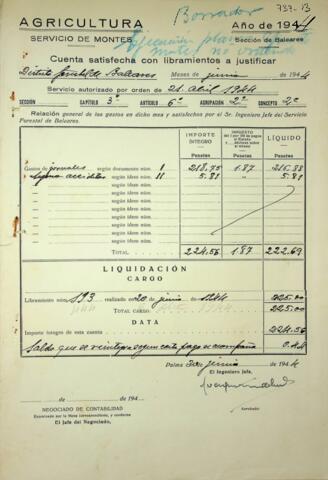 737-B
Borrador
AGRICULTURA
Año de 1944
SERVICIO DE MONTES
Sección de Baleares
Ejecución planes
montes no
Cuenta satisfecha con libramientos a justificar
Distrito forestal de Baleares Meses de junio de 1944
Servicio autorizado por orden de 21 Abril 1944
SECCIÓN CAPÍTULO 3º ARTÍCULO 6º AGRUPACIÓN 2º CONCEPTO 2º
Relación general de los gastos en dicho mes y satisfechos por el Sr. Ingeniero Jefe del Servicio
Forestal de Baleares.
IMPORTE ÍNTEGRO IMPUESTO LÍQUIDO
Pesetas Pesetas Pesetas
Gastos de jornales según documento núm. I 218,75 1'87 216,88
Seguro accidentes según ídem núm. II 5.81 " 5.81
según ídem núm.
según ídem núm.
según ídem núm.
según ídem núm.
según ídem núm.
según ídem núm.
TOTAL 224.56 1'87 222.69
LIQUIDACIÓN
CARGO
Libramiento núm. 193 realizado en 20 de junio de 1944 225.00
TOTAL CARGO 225.00
DATA
Importe íntegro de esta cuenta 224.56
Saldo que se reintegra según carta pago se acompaña 0.44
Palma 30 de junio de 1944
El Ingeniero Jefe,
de de 194
NEGOCIADO DE CONTABILIDAD
Examinada por la Mesa correspondiente, y conforme
El Jefe del Negociado,
Aprobado: